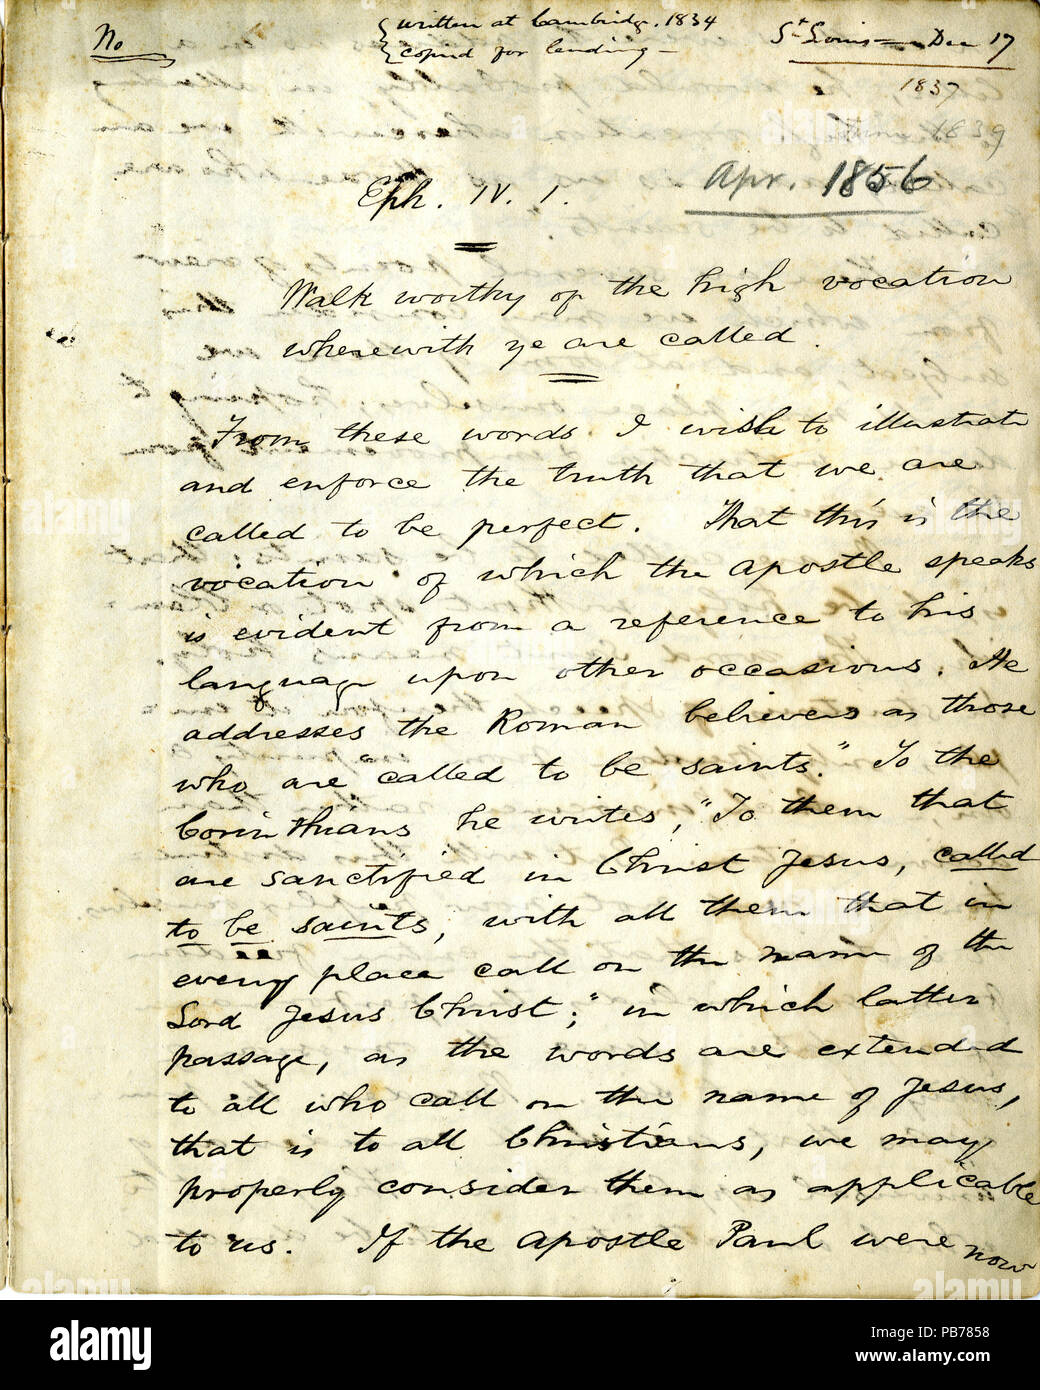 No
written at Cambridge. 1834
copied for lending —
St Louis — Dec 17
1837
1839
Apr. 1856
Eph. IV. 1.
Walk worthy of the high vocation
wherewith ye are called.
From these words I wish to illustrate
and enforce the truth that we are
called to be perfect. That this is the
vocation of which the Apostle speaks
is evident from a reference to his
language upon other occasions. He
addresses the Roman believers as those
who are "called to be saints." To the
Corinthians he writes, "To them that
are sanctified in Christ Jesus, called
to be saints, with all them that in
every place call on the name of the
Lord Jesus Christ;" in which latter
passage, as the words are extended
to all who call on the name of Jesus,
that is to all Christians, we may
properly consider them as applicable
to us. If the Apostle Paul were now
alamy
Image ID: PB7858
www.alamy.com